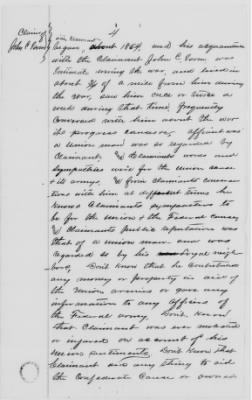 Claim of
John C
4
his claimant
began, about 1864, and his acquaintance
with the Claimant John C. was
intimate during the war, and lived in
about 3/4 of a mile from him during
the war, saw him once or twice a
week during that time, frequently
conversed with him about the war
its progress causes &c, affiant was
a Union man & was so regarded by
Claimant, Claimants words and
sympathies were for the union cause
& its army from claimants conversa-
tions with him at different times he
knows Claimants sympathies to
be for the union & the Federal cause,
Claimants public reputation was
that of a union man and was
regarded so by his loyal neigh-
bors, Don't know that he contributed
any money or property in aid of
the Union armies or gave any
information to any officers of
the Federal army, Don't know
that Claimant was ever molested
or injured on account of his
union sentiments, Don't know that
Claimant did any thing to aid
the Confederate Cause or owned